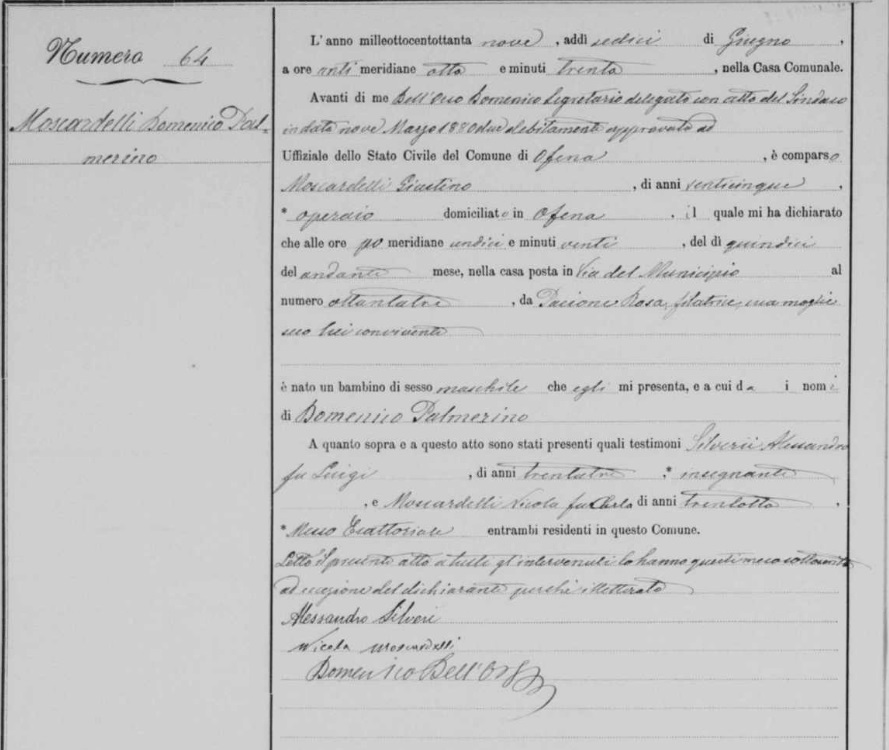 Numero 64
Moscardelli Domenico Pal-
merino
L'anno milleottocentottanta nove, addì sedici di Giugno,
a ore anti meridiane otto e minuti trenta, nella Casa Comunale.
Avanti di me Dell'Orso Domenico Segretario delegato con atto del Sindaco
in data nove Marzo 1880 due debitamente approvato ad
Uffiziale dello Stato Civile del Comune di Ofena, è comparso
Moscardelli Giustino, di anni venticinque,
* operaio domiciliato in Ofena, il quale mi ha dichiarato
che alle ore po meridiane undici e minuti venti, del dì quindici
del andante mese, nella casa posta in Via del Municipio al
numero ottantatre, da Pacione Rosa, filatrice, sua moglie
seco lui convivente
è nato un bambino di sesso maschile che egli mi presenta, e a cui da i nomi
di Domenico Palmerino
A quanto sopra e a questo atto sono stati presenti quali testimoni Silverii Alessandro
fu Luigi, di anni trentatre, * insegnante
, e Moscardelli Nicola fu Carlo di anni trentotto,
* Messo Esattoriale entrambi residenti in questo Comune.
Letto il presente atto a tutti gl'intervenuti lo hanno questi meco sottoscritto
ad eccezione del dichiarante perché illetterato
Alessandro Silveri
Nicola Moscardelli
Domenico Dell'Orso